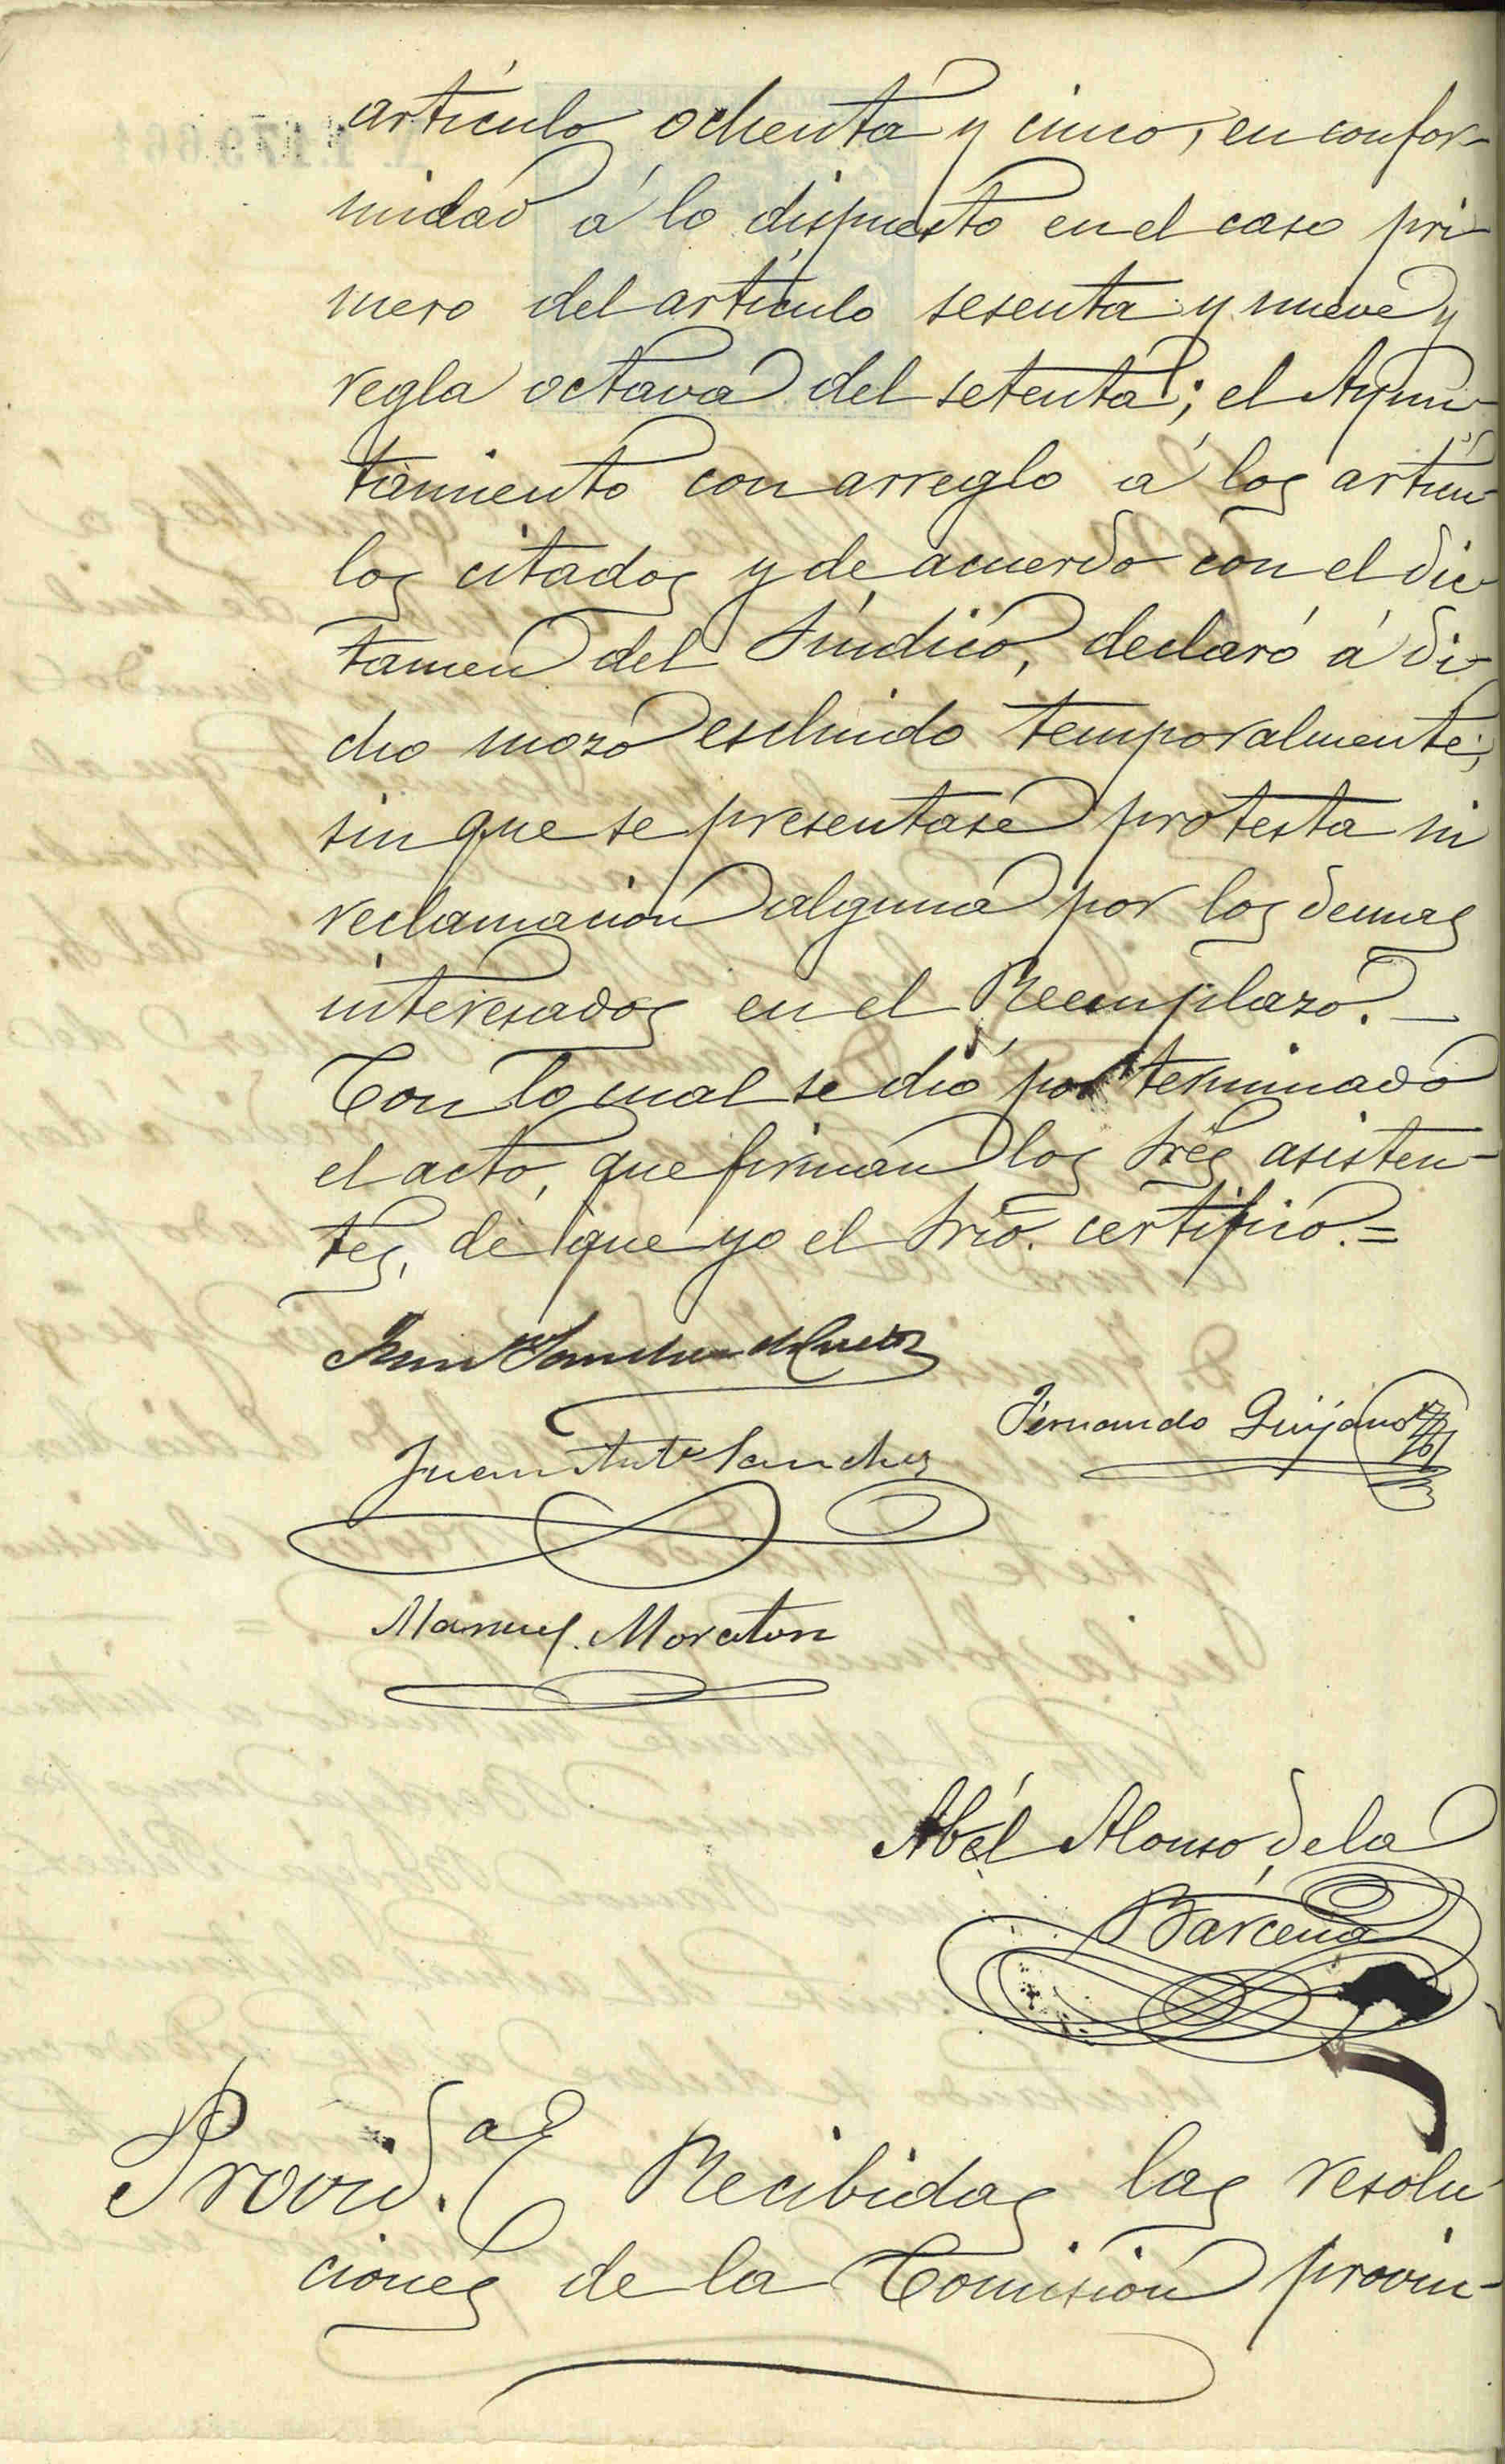 artículo ochenta y cinco, en confor-
midad á lo dispuesto en el caso pri-
mero del artículo sesenta y nueve y
regla octava del setenta; el Ayun-
tamiento con arreglo á los artícu-
los citados y de acuerdo con el dic-
tamen del Síndico, declaró á di-
cho mozo escluido temporalmente,
sin que se presentase protesta ni
reclamación alguna por los demas
interesados en el Reemplazo.—
Con lo cual se dió por terminado
el acto, que firman los Sres asisten-
tes, de que yo el Srio. certifico.=
Juan Sanchez de Cueto
Fernando Quijano
Juan Anto Sanchez
Manuel Moraton
Abél Alonso de la
Bárcena
Provid.a Recibidas las resolu-
ciones de la Comisión provin-